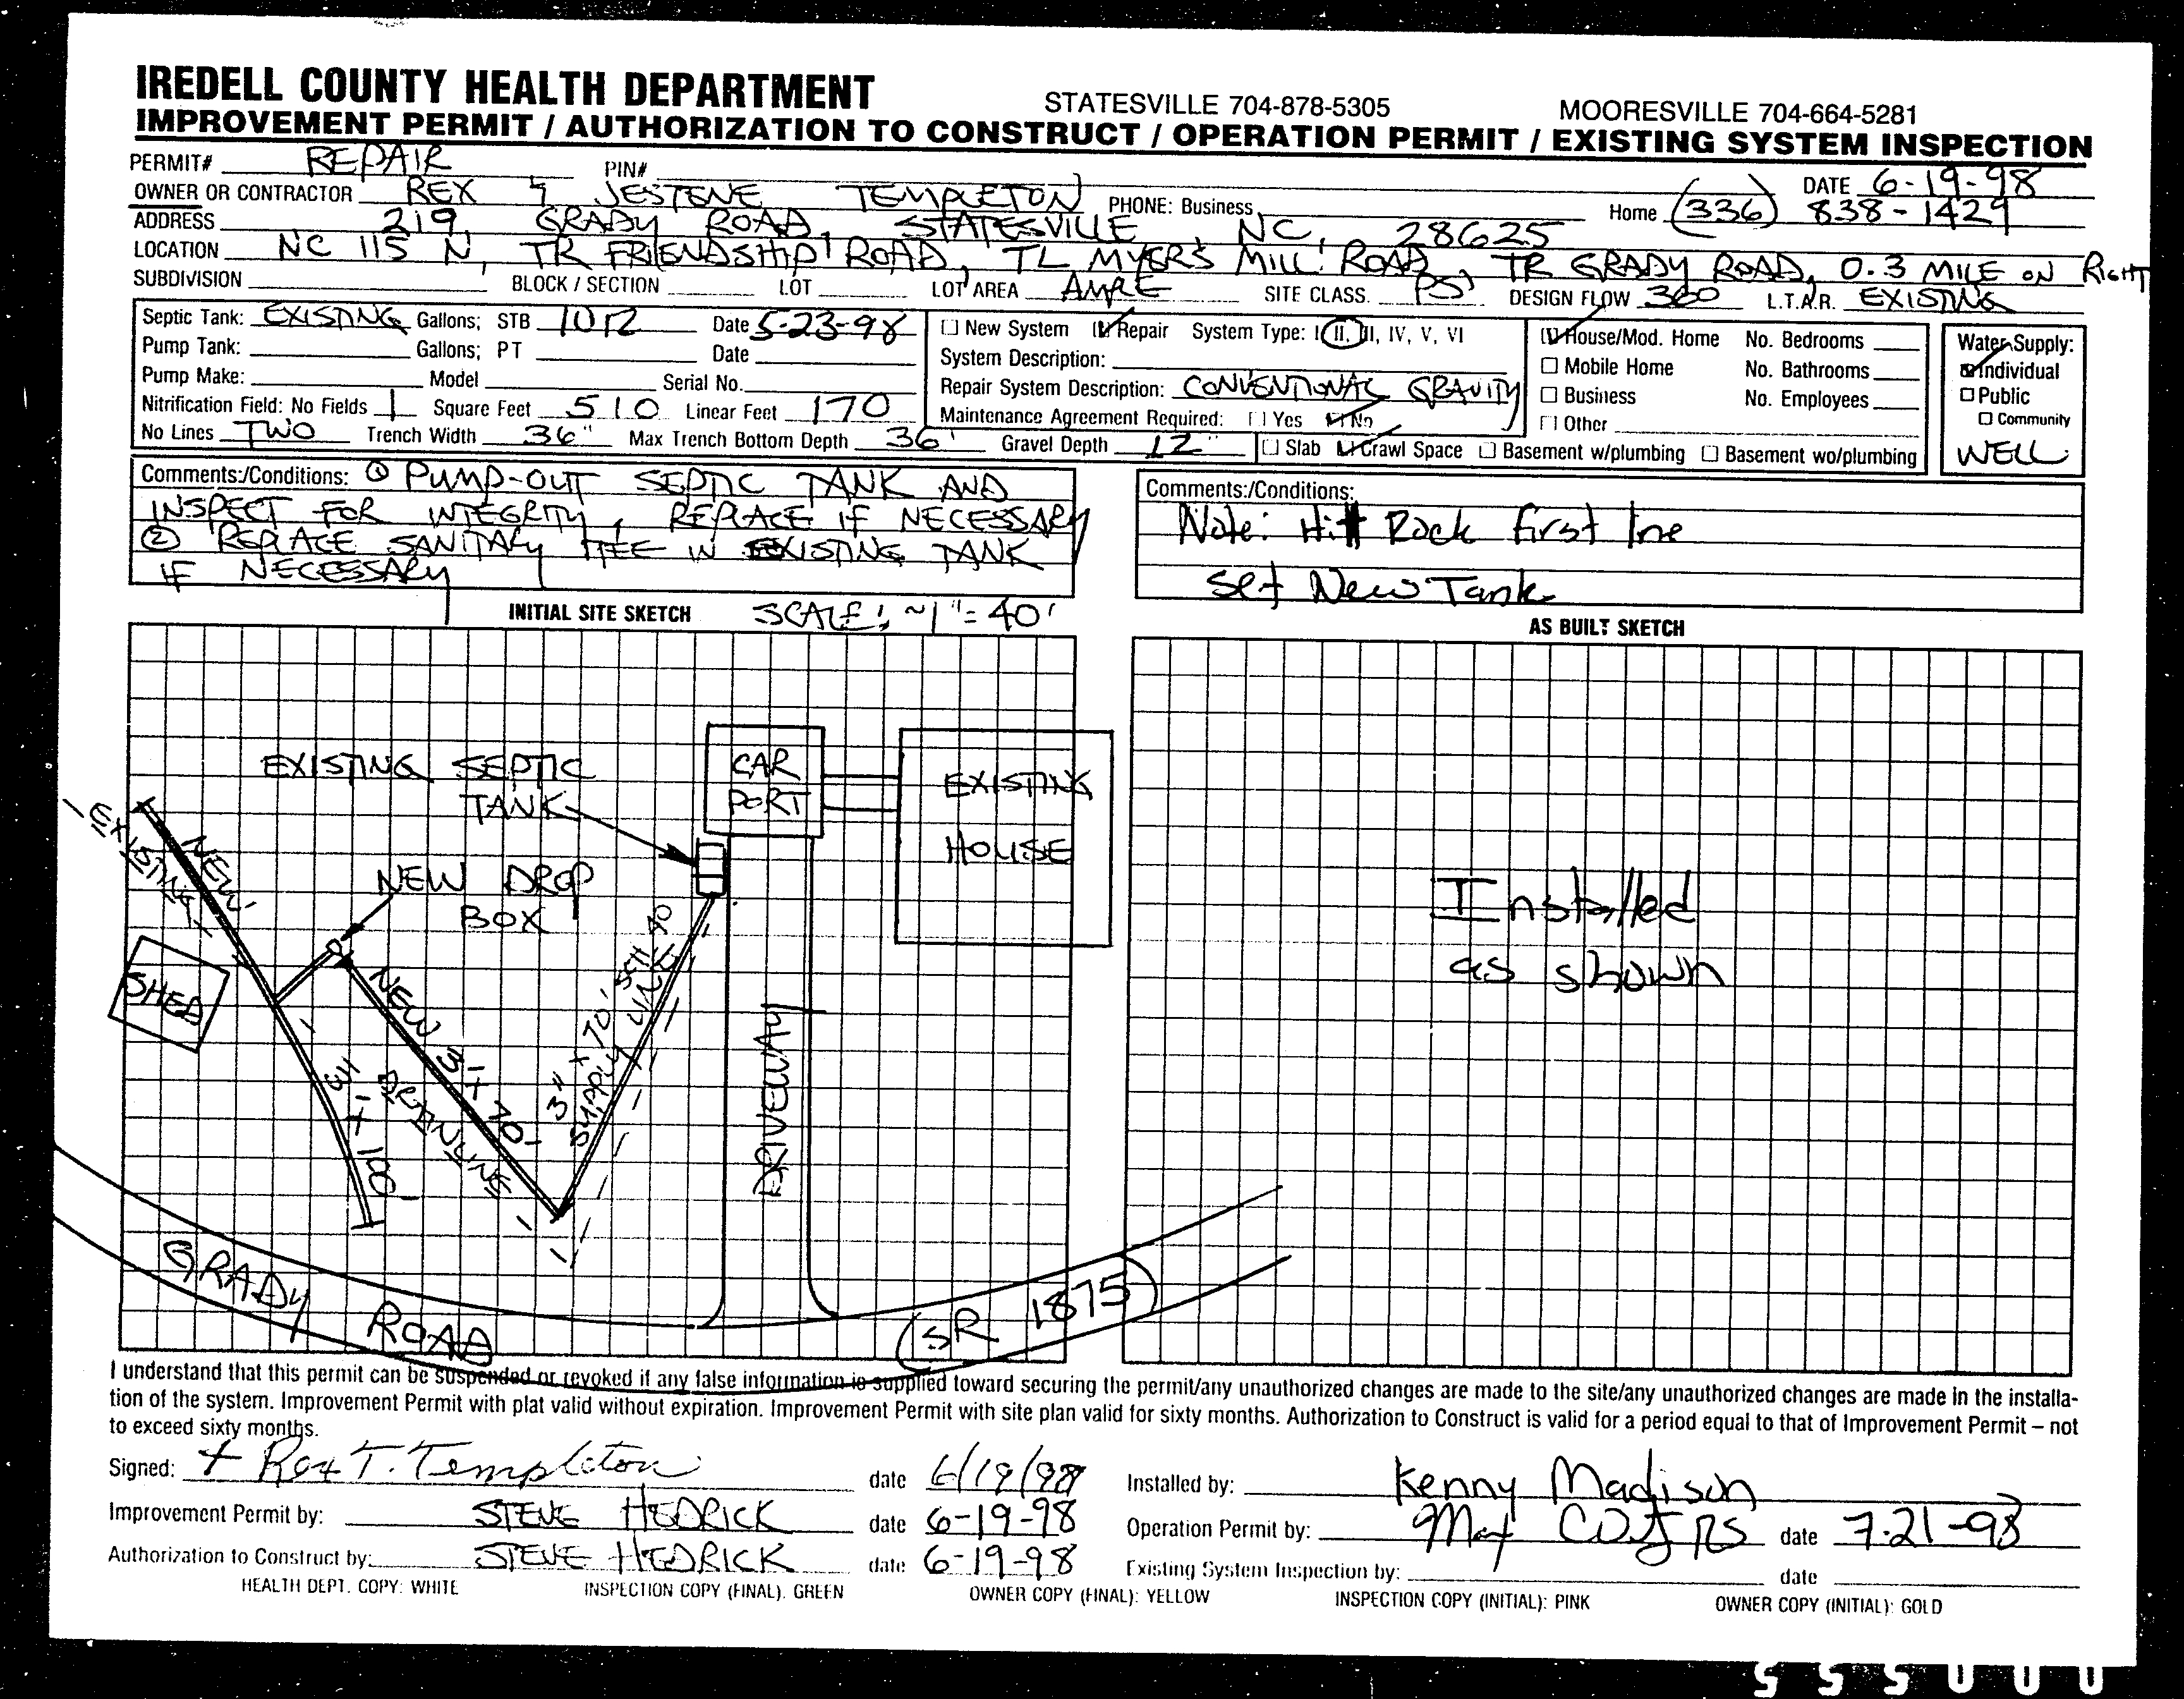 IREDELL COUNTY HEALTH DEPARTMENT STATESVILLE 704-878-5305 MOORESVILLE 704-664-5281
IMPROVEMENT PERMIT / AUTHORIZATION TO CONSTRUCT / OPERATION PERMIT / EXISTING SYSTEM INSPECTION
PERMIT# REPAIR PIN# DATE 6-19-98
OWNER OR CONTRACTOR REX & JESTENE TEMPLETON PHONE: Business Home (336) 838-1429
ADDRESS 219 GRADY ROAD, STATESVILLE, NC, 28625
LOCATION NC 115 N, TR FRIENDSHIP ROAD, TL MYERS MILL ROAD, TR GRADY ROAD, 0.3 MILE ON RIGHT
SUBDIVISION BLOCK / SECTION LOT LOT AREA AMPLE SITE CLASS. PS DESIGN FLOW 360 L.T.A.R. EXISTING
Septic Tank: EXISTING Gallons; STB Date 5-23-98
Pump Tank: Gallons; PT Date
Pump Make: Model Serial No.
Nitrification Field: No Fields 1 Square Feet 510 Linear Feet 170
No Lines TWO Trench Width 36" Max Trench Bottom Depth 36" Gravel Depth 12"
New System Repair System Type: I, II, III, IV, V, VI
System Description:
Repair System Description: CONVENTIONAL GRAVITY
Maintenance Agreement Required: Yes No
Slab Crawl Space Basement w/plumbing Basement wo/plumbing
House/Mod. Home No. Bedrooms
Mobile Home No. Bathrooms
Business No. Employees
Other
Water Supply:
Individual
Public
Community
WELL
Comments:/Conditions: ① PUMP-OUT SEPTIC TANK AND
INSPECT FOR INTEGRITY, REPLACE IF NECESSARY
② REPLACE SANITARY TEE IN EXISTING TANK
IF NECESSARY
Comments:/Conditions:
Note: Hit Rock first line
set New Tank
INITIAL SITE SKETCH SCALE: ~1"=40'
AS BUILT SKETCH
EXISTING SEPTIC
TANK
CAR
PORT
EXISTING
HOUSE
EXISTING
NEW
NEW DROP
BOX
SHED
NEW 3' X 70'
DRAINLINE
3' X 100'
3" X 70' SCH 40
SUPPLY LINE
DRIVEWAY
GRADY ROAD (SR 1875)
Installed
as shown
I understand that this permit can be suspended or revoked if any false information is supplied toward securing the permit/any unauthorized changes are made to the site/any unauthorized changes are made in the installa-
tion of the system. Improvement Permit with plat valid without expiration. Improvement Permit with site plan valid for sixty months. Authorization to Construct is valid for a period equal to that of Improvement Permit – not
to exceed sixty months.
Signed: + Rex T. Templeton date 6/19/98 Installed by: Kenny Madison
Improvement Permit by: STEVE HEDRICK date 6-19-98 Operation Permit by: RS date 7-21-98
Authorization to Construct by: STEVE HEDRICK date 6-19-98 Existing System Inspection by: date
HEALTH DEPT. COPY: WHITE INSPECTION COPY (FINAL). GREEN OWNER COPY (FINAL): YELLOW INSPECTION COPY (INITIAL): PINK OWNER COPY (INITIAL): GOLD